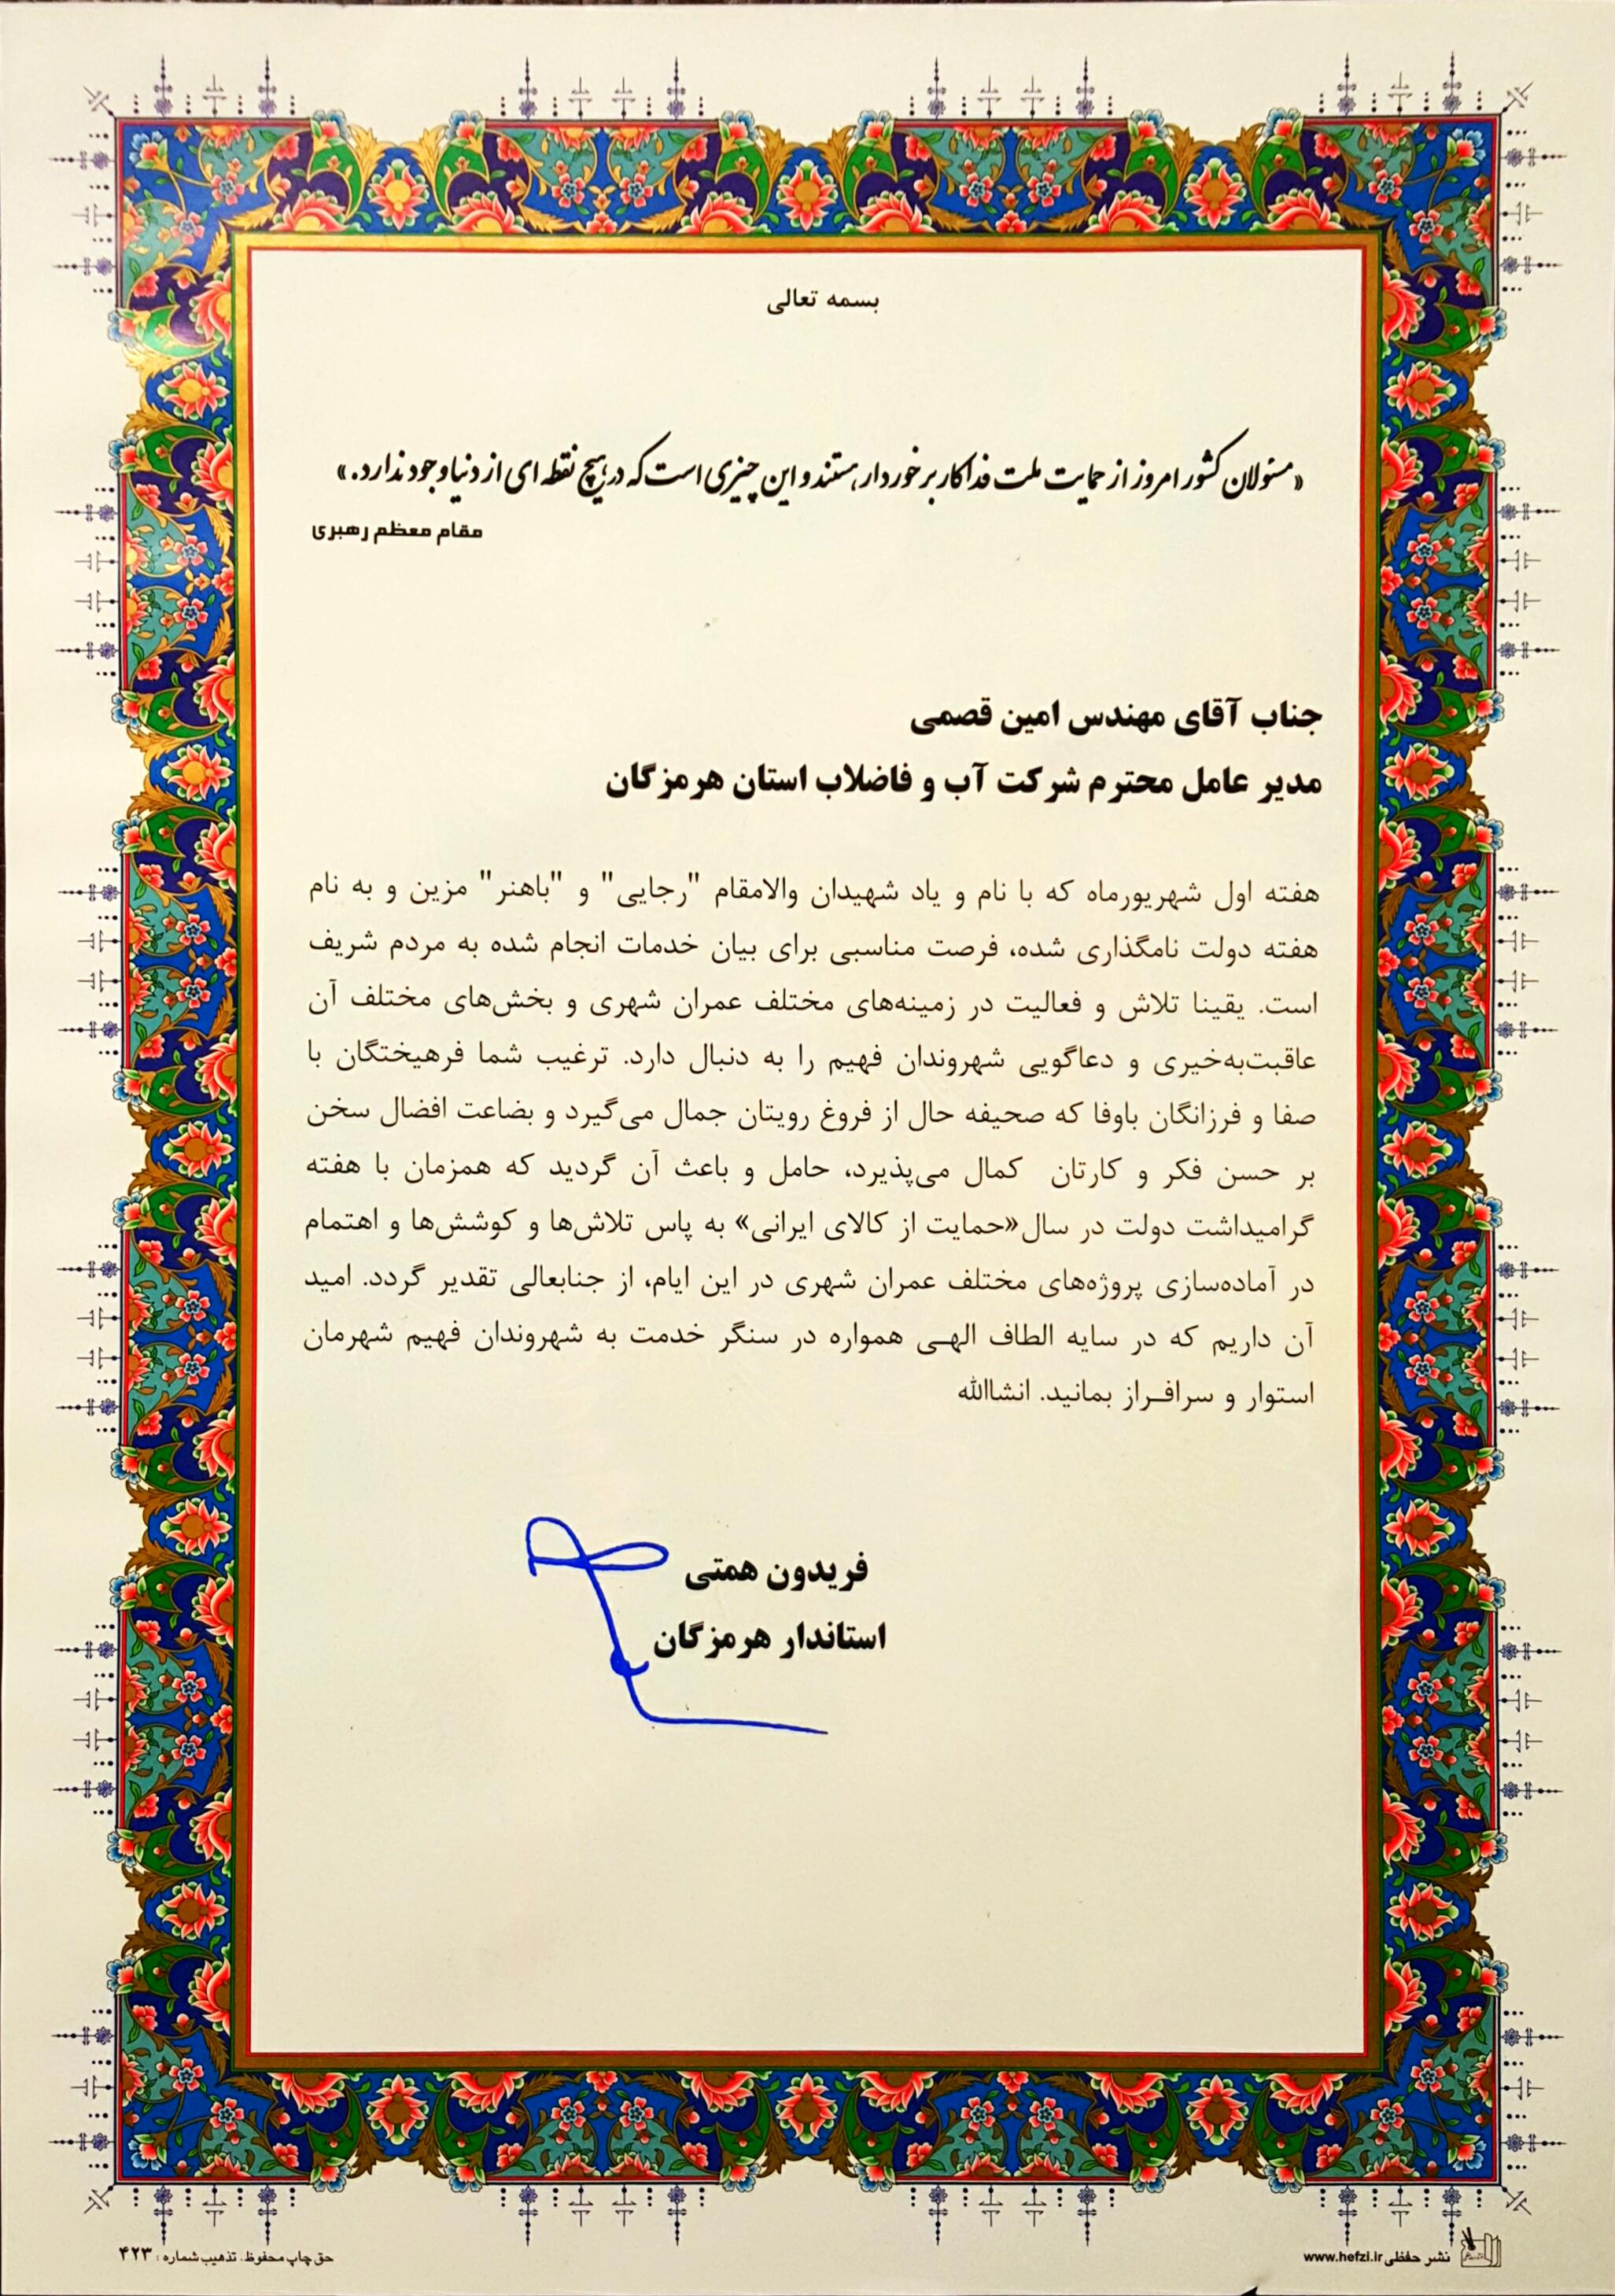 بسمه تعالی
«مسئولان کشور امروز از حمایت ملت فداکار برخوردار هستند و این چیزی است که در هیچ نقطه ای از دنیا وجود ندارد.»
مقام معظم رهبری
جناب آقای مهندس امین قصمی
مدیر عامل محترم شرکت آب و فاضلاب استان هرمزگان
هفته اول شهریورماه که با نام و یاد شهیدان والامقام "رجایی" و "باهنر" مزین و به نام
هفته دولت نامگذاری شده، فرصت مناسبی برای بیان خدمات انجام شده به مردم شریف
است. یقینا تلاش و فعالیت در زمینه‌های مختلف عمران شهری و بخش‌های مختلف آن
عاقبت‌به‌خیری و دعاگویی شهروندان فهیم را به دنبال دارد. ترغیب شما فرهیختگان با
صفا و فرزانگان باوفا که صحیفه حال از فروغ رویتان جمال می‌گیرد و بضاعت افضال سخن
بر حسن فکر و کارتان کمال می‌پذیرد، حامل و باعث آن گردید که همزمان با هفته
گرامیداشت دولت در سال «حمایت از کالای ایرانی» به پاس تلاش‌ها و کوشش‌ها و اهتمام
در آماده‌سازی پروژه‌های مختلف عمران شهری در این ایام، از جنابعالی تقدیر گردد. امید
آن داریم که در سایه الطاف الهی همواره در سنگر خدمت به شهروندان فهیم شهرمان
استوار و سرافراز بمانید. انشاالله
فریدون همتی
استاندار هرمزگان
نشر حفظی www.hefzi.ir
حق چاپ محفوظ. تذهیب شماره : ۴۲۳